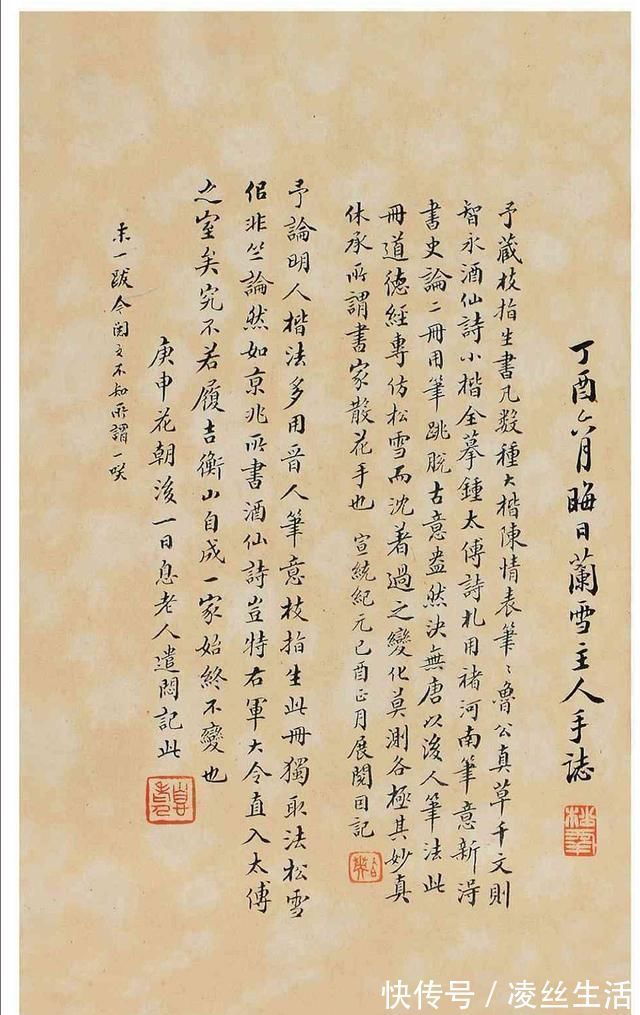 丁酉六月晦日蘭雪主人手誌
予蔵枝指生書凡数種大楷陳情表筆〻魯公真草千文則
智永酒仙詩小楷全摹鍾太傅詩札用褚河南筆意新淂
書史論二冊用筆跳脫古意盎然決無唐以後人筆法此
冊道德經專仿松雪而沈著過之變化莫測各極其妙真
休承所謂書家散花手也 宣統紀元己酉正月展閱因記
予論明人楷法多用晋人筆意枝指生此冊獨取法松雪
侣非竺論然如京兆所書酒仙詩豈特右軍大令直入太傅
之室矣究不若履吉衡山自成一家始終不變也
庚申花朝後一日息老人遣悶記此
末一跋今閱之不知所謂一咲
快传号/凌丝生活